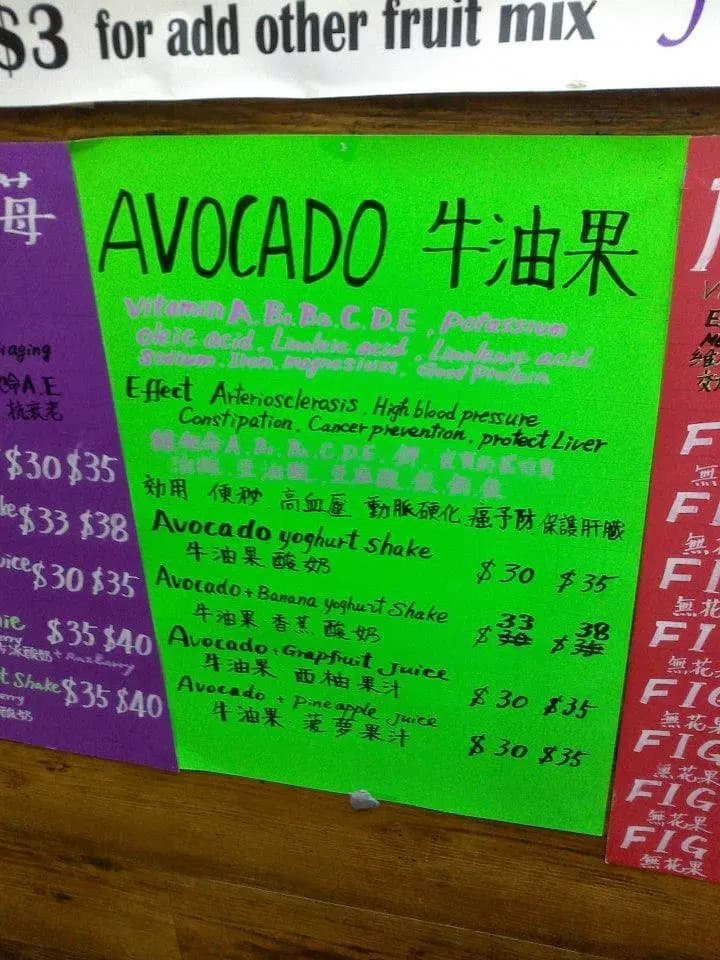 $3 for add other fruit mix
莓
AVOCADO 牛油果
Vitamin A. B1. B2. C. D. E. potassium
oleic acid. Linoleic acid. Linolenic acid
Sodium. Iron. magnesium. Good protein
Effect Arteriosclerosis. High blood pressure
Constipation. Cancer prevention. protect Liver
A. B1. B2. C. D. E. 鉀.
効用 便秒 高血压 動脈硬化 癌予防 保護肝臓
Avocado yoghurt shake
牛油果 酸奶 $30 $35
Avocado + Banana yoghurt Shake
牛油果 香蕉 酸奶 $33 $38
Avocado + Grapfruit Juice
牛油果 西柚果汁 $30 $35
Avocado + Pineapple juice
牛油果 菠萝果汁 $30 $35
aging
命A.E
抗衰老
$30 $35
$33 $38
$30 $35
$35 $40
冰酸奶 + Razberry
t Shake $35 $40
酸奶
維
FI
無
FI
無
FI
無花
FI
無花果
FIG
無花果
FIG
無花果
FIG
無花果
FIG
無花果